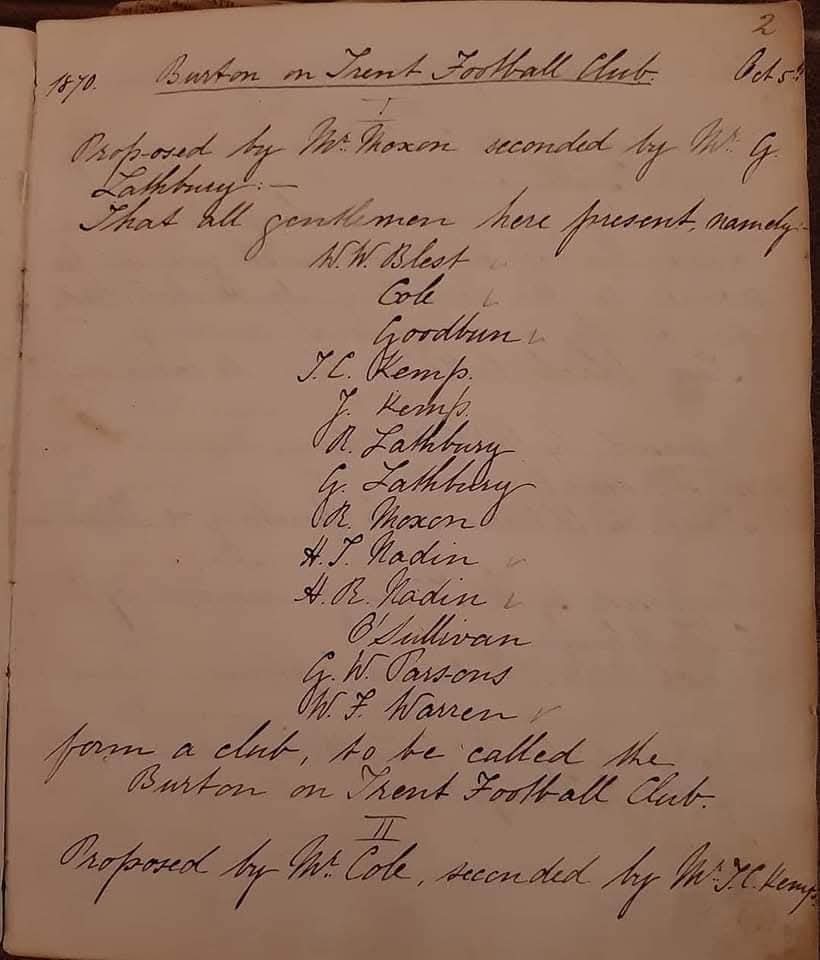 2
1870. Burton on Trent Football Club. Oct 5th
I
Proposed by Mr. Moxon seconded by Mr. G.
Lathbury:—
That all gentlemen here present, namely:-
W. W. Blest
Cole
Goodbun
T. C. Kemp.
J. Kemp.
R. Lathbury
G. Lathbury
R. Moxon
H. T. Nadin
H. R. Nadin
O'Sullivan
G. W. Parsons
W. F. Warren
form a club, to be called the
Burton on Trent Football Club.
II
Proposed by Mr. Cole, seconded by Mr. T. C. Kemp